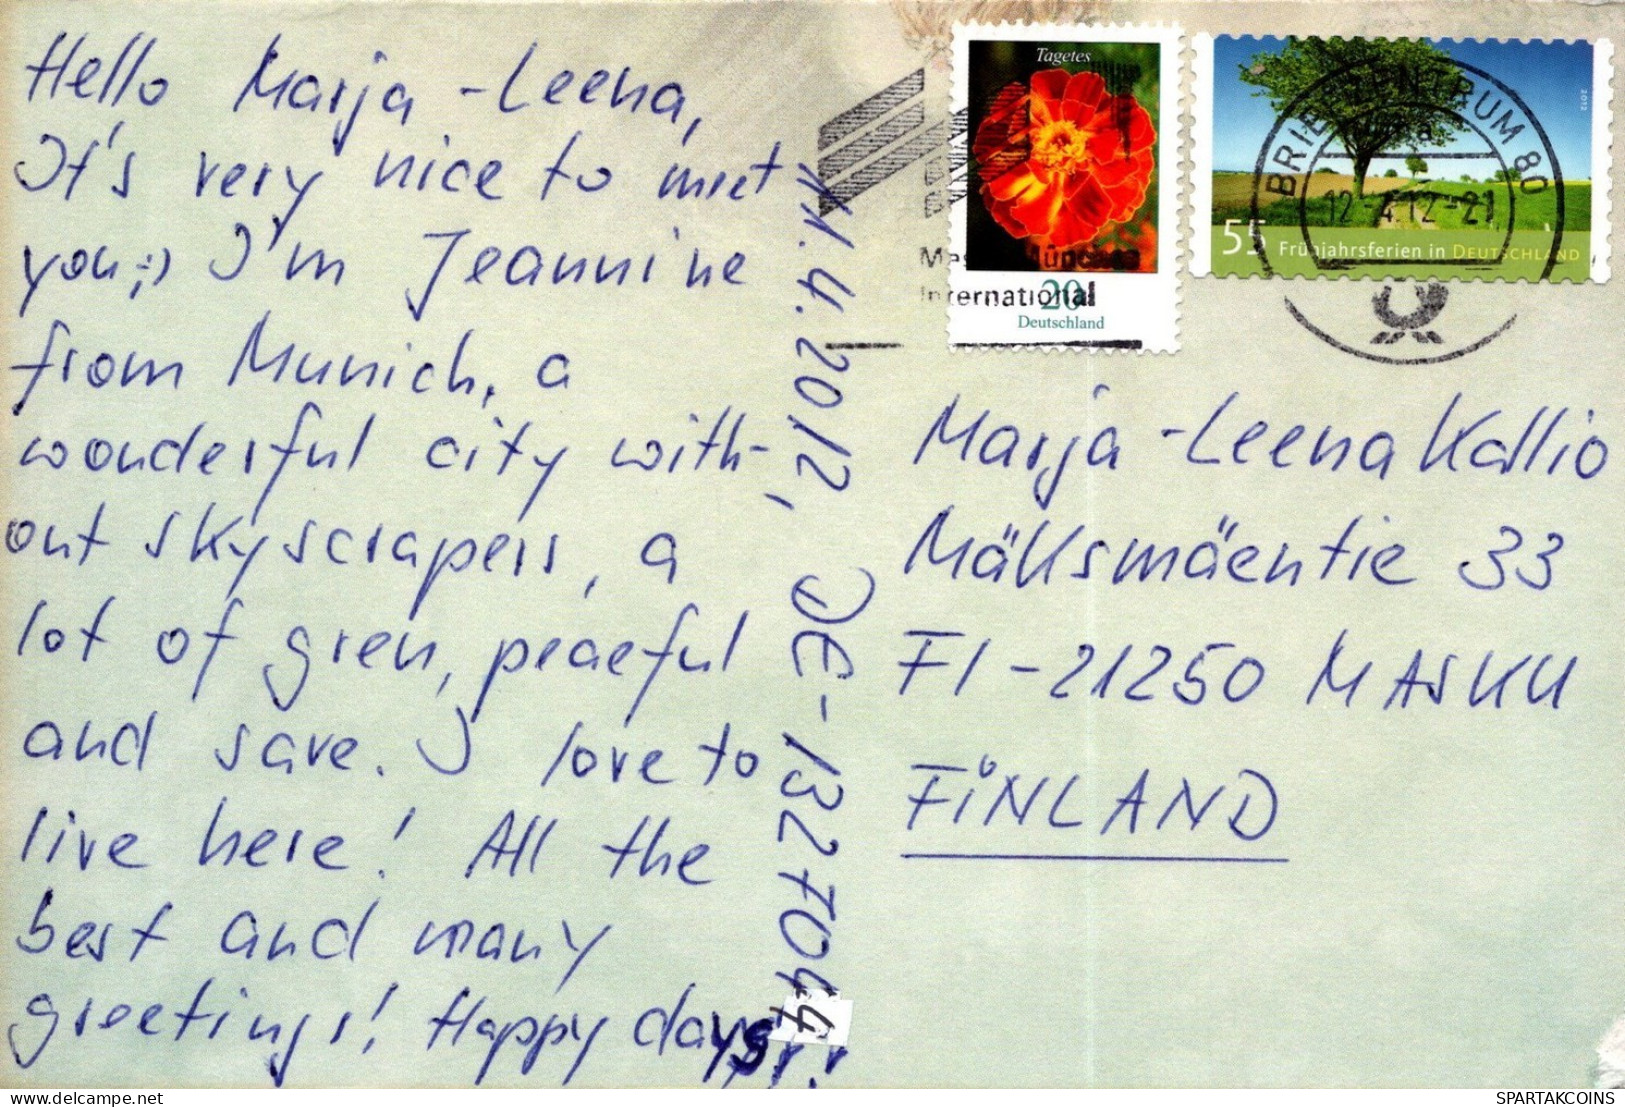 Hello Marja-Leena,
It's very nice to meet
you ;) I'm Jeannine
from Munich, a
wonderful city with-
out skyscrapers, a
lot of gren, peaceful
and save. I love to
live here! All the
best and many
greetings! Happy days!!
11.4.2012, DE-1327044
Tagetes
20
Deutschland
2012
55 Frühjahrsferien in DEUTSCHLAND
BRIEFZENTRUM 80
12.-4.12-21
International
Marja-Leena Kallio
Mäksmäentie 33
FI-21250 MASKU
FINLAND
delcampe.net
SPARTAKCOINS